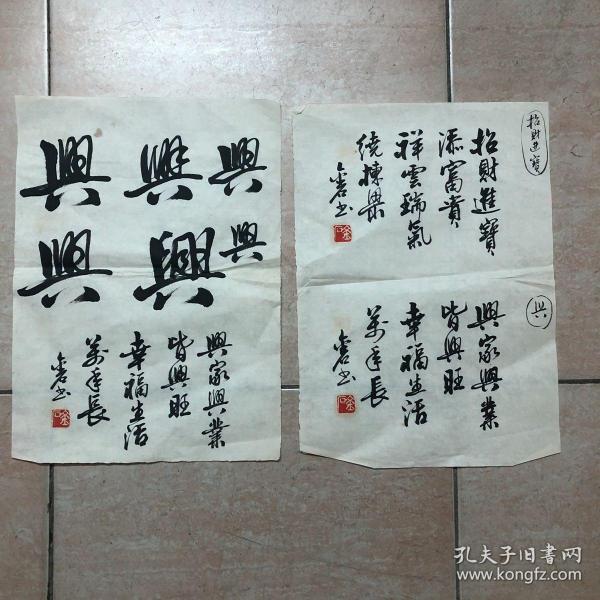 興 興 興
興 興 興
興家興業
皆興旺
幸福生活
萬年長
招財進寶
招財進寶
添富貴
祥雲瑞氣
繞棟梁
興
興家興業
皆興旺
幸福生活
萬年長
孔夫子旧书网
www.kongfz.com